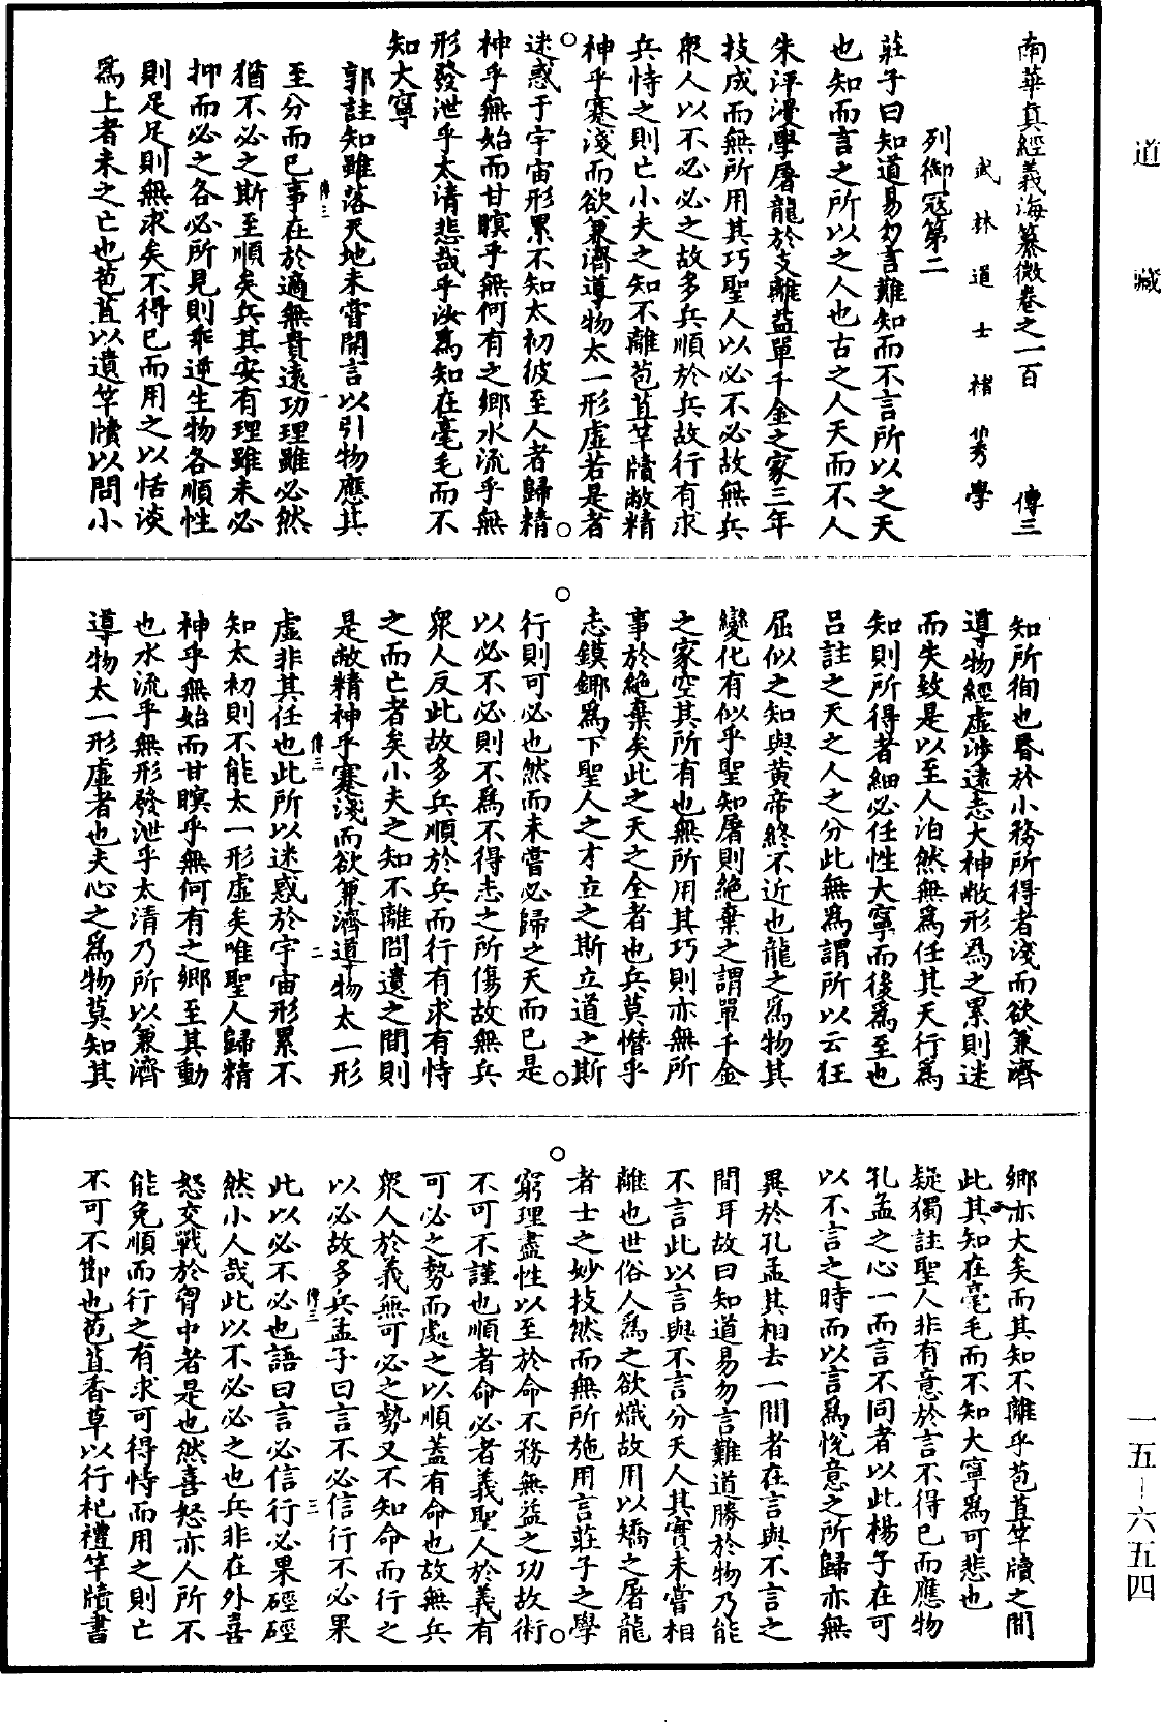 道藏
南華真經義海纂微卷之一百　傳三
武林道士褚伯秀學
列禦寇第二
莊子曰知道易勿言難知而不言所以之天
也知而言之所以之人也古之人天而不人
朱泙漫學屠龍於支離益單千金之家三年
技成而無所用其巧聖人以必不必故無兵
衆人以不必必之故多兵順於兵故行有求
兵恃之則亡小夫之知不離苞苴竿牘敝精
神乎蹇淺而欲兼濟導物太一形虛若是者
迷惑于宇宙形累不知太初彼至人者歸精
神乎無始而甘瞑乎無何有之鄉水流乎無
形發泄乎太清悲哉乎汝為知在毫毛而不
知大寧
郭註知雖落天地未嘗開言以引物應其
至分而已事在於適無貴遠功理雖必然
傳三　一
猶不必之斯至順矣兵其安有理雖未必
抑而必之各必所見則乖逆生物各順性
則足足則無求矣不得已而用之以恬淡
為上者未之亡也苞苴以遺竿牘以問小
知所徇也昬於小務所得者淺而欲兼濟
導物經虛涉遠志大神敝形為之累則迷
而失致是以至人泊然無為任其天行為
知則所得者細必任性大寧而後為至也
呂註之天之人之分此無為謂所以云狂
屈似之知與黃帝終不近也龍之為物其
變化有似乎聖知屠則絕棄之謂單千金
之家空其所有也無所用其巧則亦無所
事於絕棄矣此之天之全者也兵莫憯乎
志鏌鋣為下聖人之才立之斯立道之斯
行則可必也然而未嘗必歸之天而已是
以必不必則不為不得志之所傷故無兵
衆人反此故多兵順於兵而行有求有恃
之而亡者矣小夫之知不離問遺之間則
是敝精神乎蹇淺而欲兼濟導物太一形
傳三　二
虛非其任也此所以迷惑於宇宙形累不
知太初則不能太一形虛矣唯聖人歸精
神乎無始而甘瞑乎無何有之鄉至其動
也水流乎無形發泄乎太清乃所以兼濟
導物太一形虛者也夫心之為物莫知其
鄉亦大矣而其知不離乎苞苴竿牘之間
此其知在毫毛而不知大寧為可悲也
疑獨註聖人非有意於言不得已而應物
孔孟之心一而言不同者以此楊子在可
以不言之時而以言為悅意之所歸亦無
異於孔孟其相去一間者在言與不言之
間耳故曰知道易勿言難道勝於物乃能
不言此以言與不言分天人其實未嘗相
離也世俗人為之欲熾故用以矯之屠龍
者士之妙技然而無所施用言莊子之學
窮理盡性以至於命不務無益之功故術
不可不謹也順者命必者義聖人於義有
可必之勢而處之以順蓋有命也故無兵
衆人於義無可必之勢又不知命而行之
以必故多兵孟子曰言不必信行不必果
傳三　三
此以必不必也語曰言必信行必果硜硜
然小人哉此以不必必之也兵非在外喜
怒交戰於胷中者是也然喜怒亦人所不
能免順而行之有求可得恃而用之則亡
不可不節也苞苴香草以行祀禮竿牘書
一五—六五四